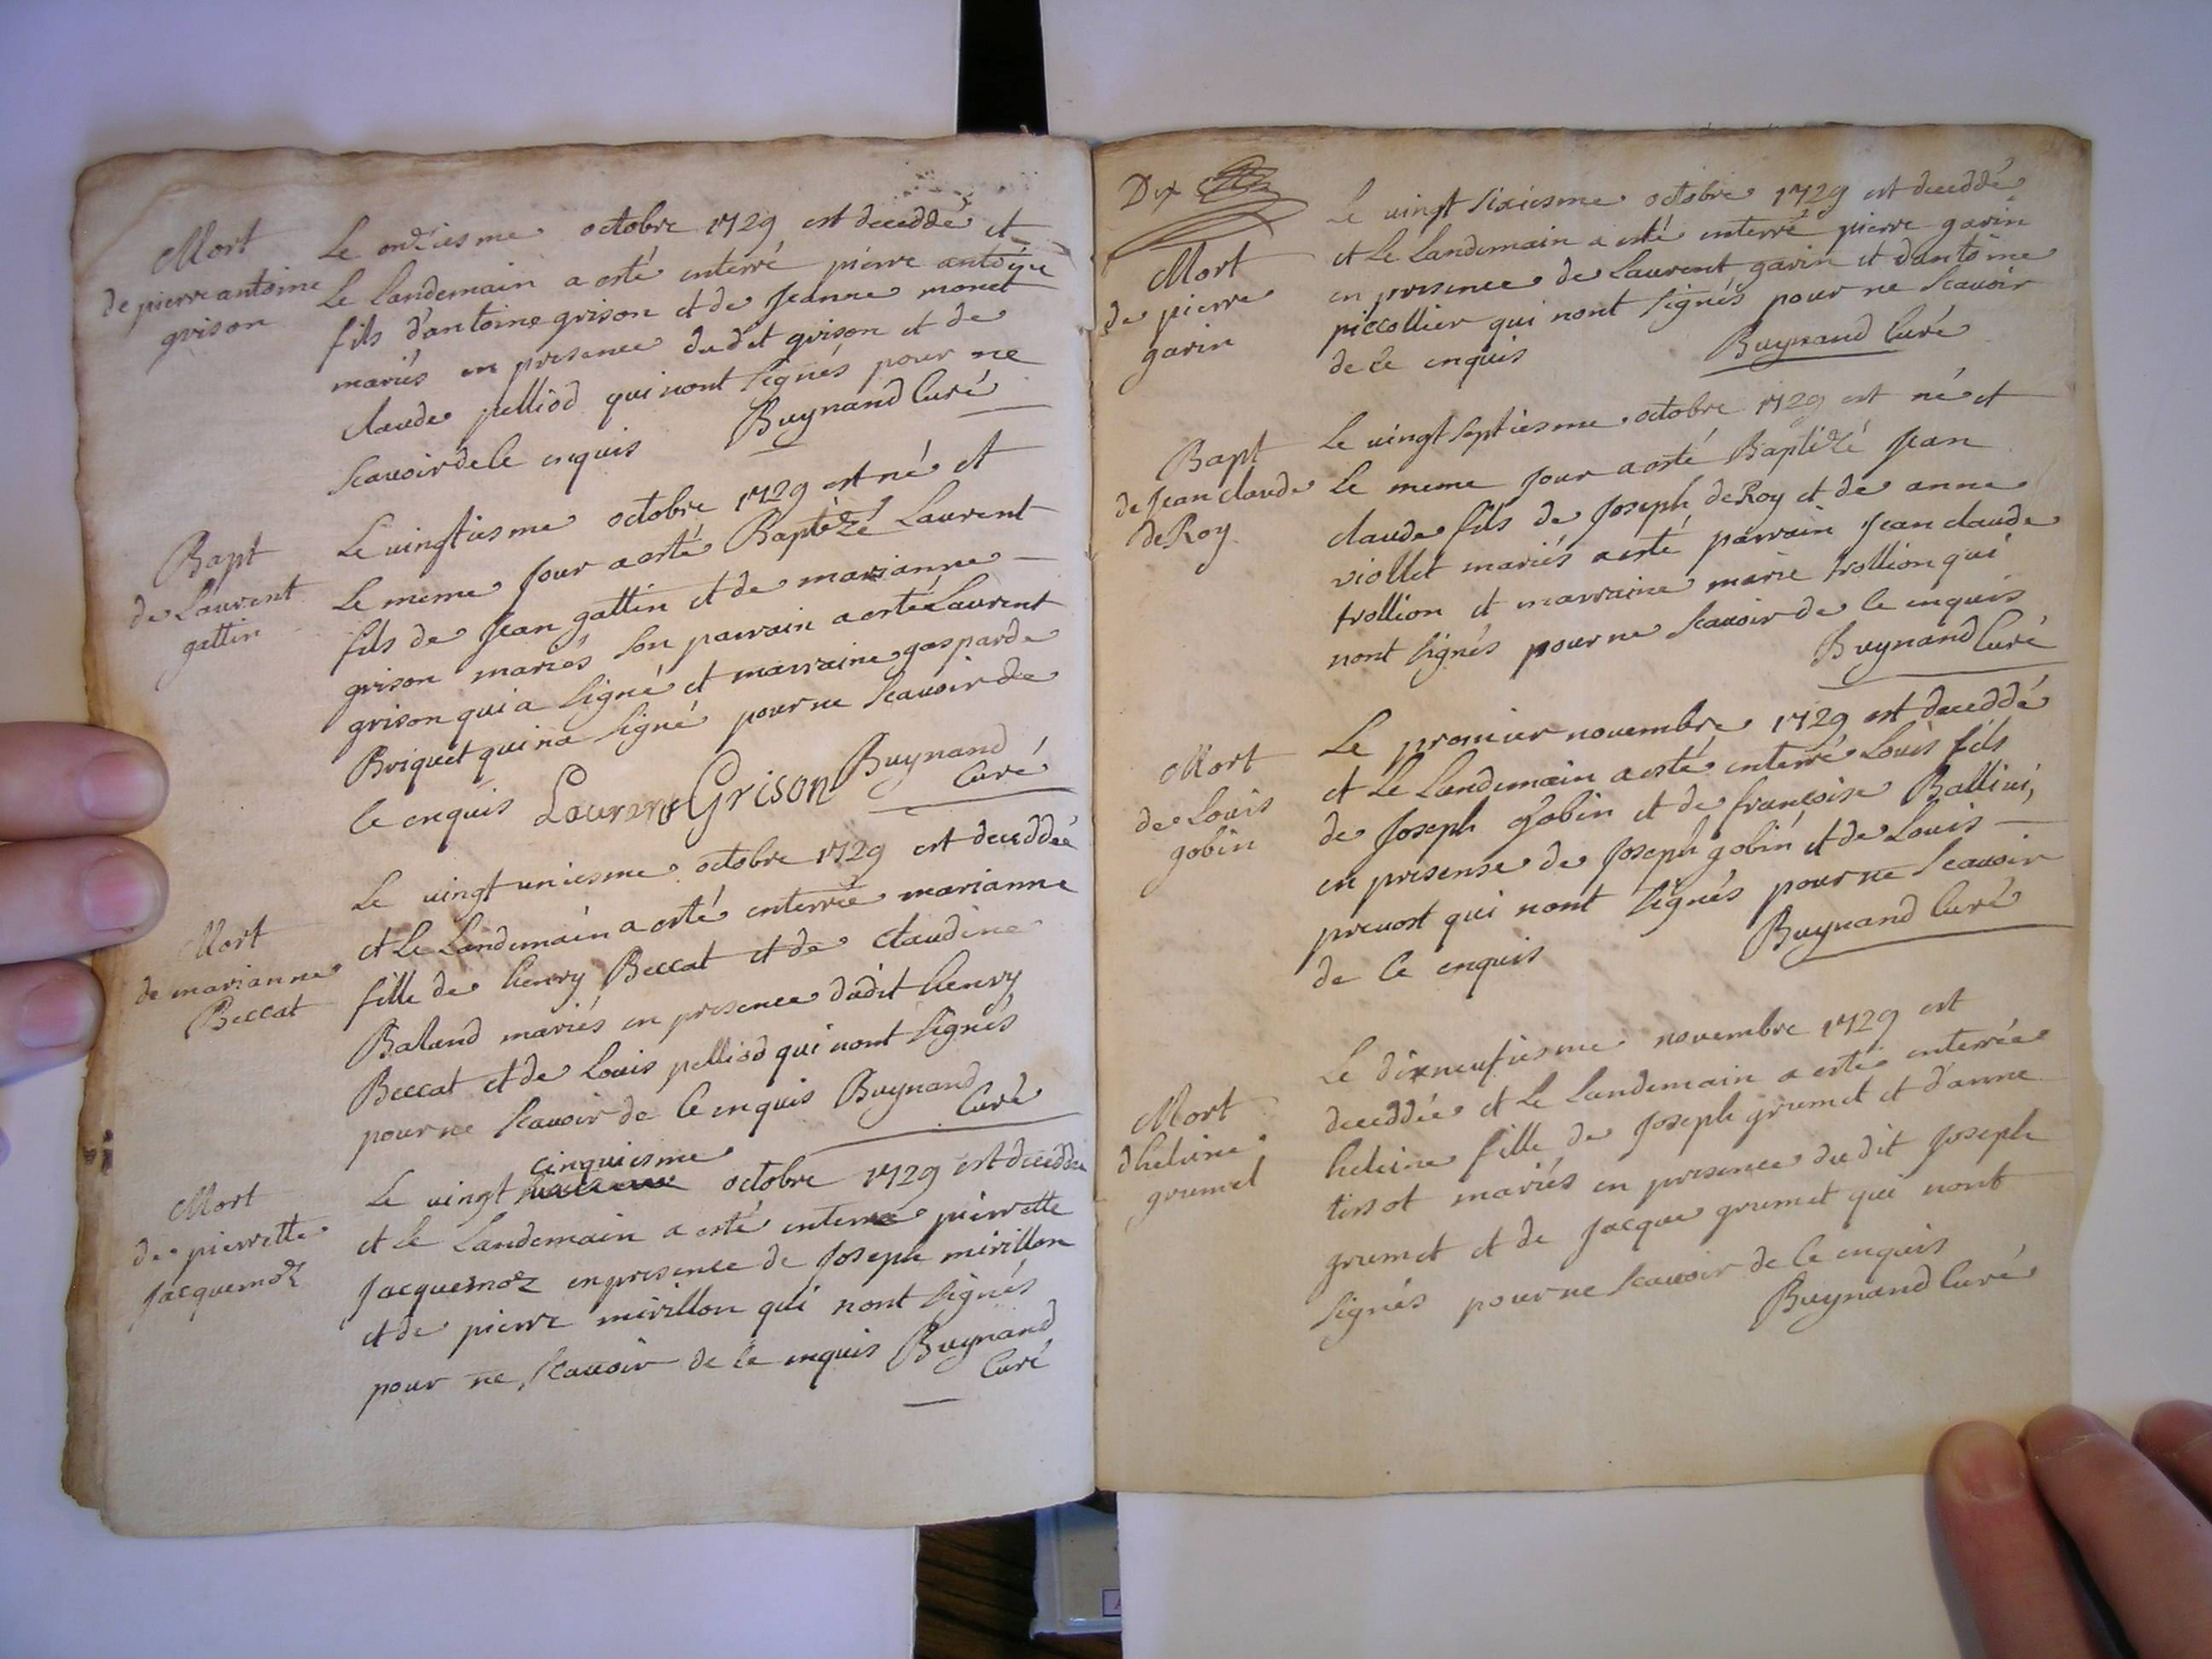 Mort
de pierre antoine
grison
Le onziesme octobre 1729 est deceddé et
Le Landemain a esté enterré pierre antoine
fils d'antoine grison et de Jeanne monet
mariés en presence dudit grison et de
claude pelliod qui nont signés pour ne
scavoir de ce enquis Buynand Curé
Bapt
de Laurent
gattin
Le vingtiesme octobre 1729 est né et
Le meme Jour a esté Baptizé Laurent
fils de Jean gattin et de marianne
grison mariés son parrain a esté Laurent
grison qui a signé et marraine gasparde
Briquet qui na signé pour ne scavoir de
ce enquis Laurent Grison Buynand
Curé
Mort
de marianne
Beccat
Le vingt uniesme octobre 1729 est deceddée
et Le Landemain a esté enterrée marianne
fille de henry Beccat et de claudine
Baland mariés en presence dudit henry
Beccat et de Louis pelliod qui nont signés
pour ne scavoir de ce enquis Buynand
Curé
Mort
de pierrette
Jacquemoz
cinquiesme
Le vingt octobre 1729 est deceddée
et le Landemain a esté enterrée pierrette
Jacquemoz en presence de Joseph mirillon
et de pierre mirillon qui nont signés
pour ne scavoir de ce enquis Buynand
Curé
Dix
Mort
de pierre
garin
Le vingt sixiesme octobre 1729 est deceddé
et Le Landemain a esté enterré pierre garin
en presence de Laurent garin et d'antoine
piccollier qui nont signés pour ne scavoir
de ce enquis Buynand Curé
Bapt
de Jean claude
deRoy
Le vingt septiesme octobre 1729 est né et
Le meme Jour a esté Baptizé Jean
claude fils de Joseph deRoy et de anne
viollet mariés a esté parrain Jean claude
trollion et marraine marie trollion qui
nont signés pour ne scavoir de ce enquis
Buynand Curé
Mort
de Louis
gobin
Le premier novembre 1729 est deceddé
et Le Landemain a esté enterré Louis fils
de Joseph gobin et de françoise Ballivi,
en presense de Joseph gobin et de Louis
prevost qui nont signés pour ne scavoir
de ce enquis Buynand Curé
Mort
d'heleine
grumet
Le dixneufiesme novembre 1729 est
deceddée et Le Landemain a esté enterrée
heleine fille de Joseph grumet et d'anne
tissot mariés en presence dudit Joseph
grumet et de Jacque grumet qui nont
signés pour ne scavoir de ce enquis
Buynand Curé